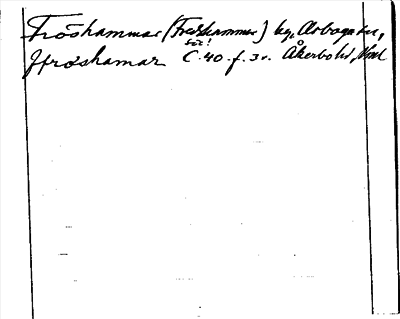 Fröshammar (Fredshammar) by, Arboga sn,
sic!
ffröshamar C. 40. f. 3v. Åkerbo hd, Vml